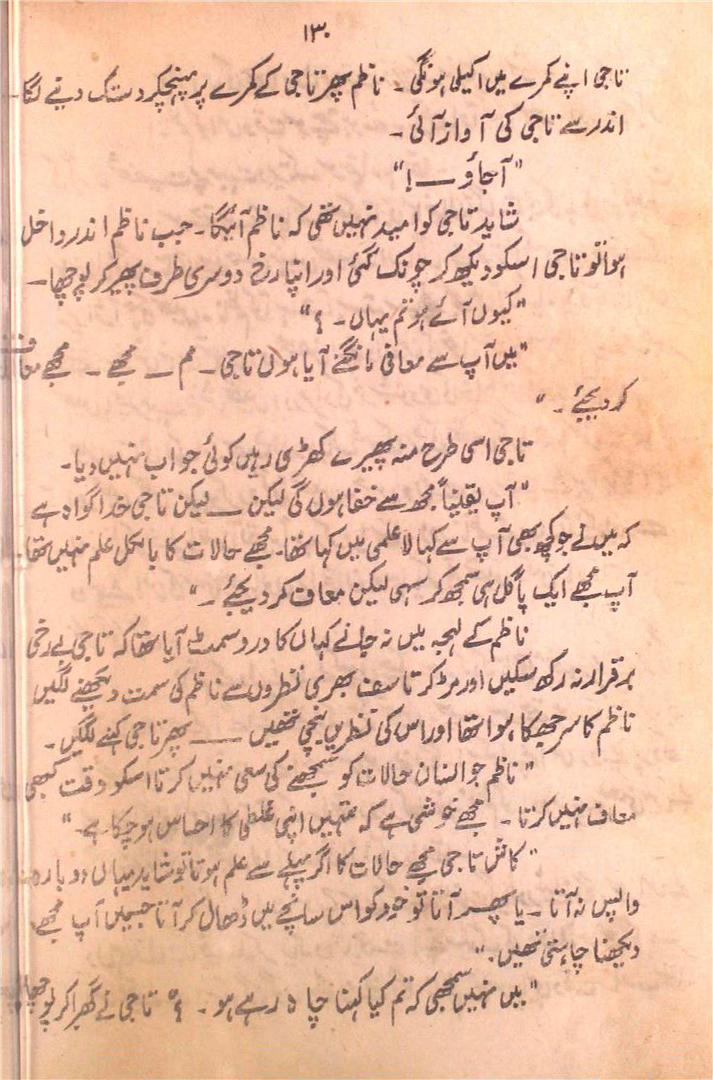 ۱۳۰
تاجی اپنے کمرے میں اکیلی ہونگی ۔ ناظم پھر تاجی کے کمرے پر پہنچکر دستک دینے لگا
اندر سے تاجی کی آواز آئی ۔
"آجاؤ ــــ !"
شاید تاجی کو امید نہیں تھی کہ ناظم آئیگا ۔ جب ناظم اندر داخل
ہوا تو تاجی اسکو دیکھ کر چونک گئی اور اپنا رخ دوسری طرف پھیر کر پوچھا ۔
"کیوں آئے ہو تم یہاں ۔ ؟"
"میں آپ سے معافی مانگنے آیا ہوں تاجی ۔ مم ــ مجھے ۔ مجھے معاف
کر دیجئے ۔"
تاجی اسی طرح منہ پھیرے کھڑی رہیں کوئی جواب نہیں دیا ۔
"آپ یقیناً مجھ سے خفا ہوں گی لیکن ــــ لیکن تاجی خدا گواہ ہے
کہ میں نے جو کچھ بھی آپ سے کہا لا علمی میں کہا تھا ۔ مجھے حالات کا بالکل علم نہیں تھا ۔
آپ مجھے ایک پاگل ہی سمجھ کر سہی لیکن معاف کر دیجئے ۔"
ناظم کے لہجہ میں نہ جانے کہاں کا درد سمٹ آیا تھا کہ تاجی بے رخی
برقرار نہ رکھ سکیں اور مڑ کر تاسف بھری نظروں سے ناظم کی سمت دیکھنے لگیں
ناظم کا سر جھکا ہوا تھا اور اس کی نظریں نیچی تھیں ــــ پھر تاجی کہنے لگیں ۔
"ناظم جو انسان حالات کو سمجھنے کی سعی نہیں کرتا اسکو وقت کبھی
معاف نہیں کرتا ۔ مجھے خوشی ہے کہ تمہیں اپنی غلطی کا احساس ہو چکا ہے ۔"
"کاش تاجی مجھے حالات کا اگر پہلے سے علم ہوتا تو شاید یہاں دوبارہ
واپس نہ آتا ۔ یا پھر آتا تو خود کو اس سانچے میں ڈھال کر آتا جسمیں آپ مجھے
دیکھنا چاہتی تھیں ۔"
"میں نہیں سمجھی کہ تم کیا کہنا چاہ رہے ہو ۔ ؟" تاجی نے گھبرا کر پوچھا